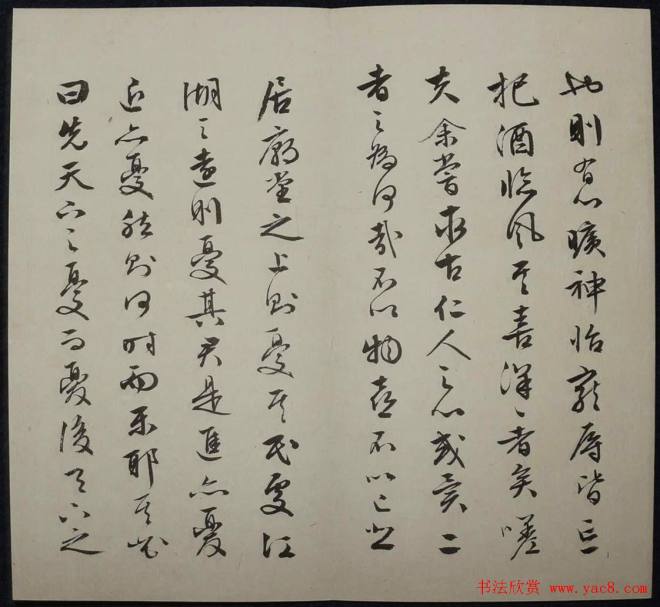 也則有心曠神怡寵辱皆忘
把酒臨風其喜洋〻者矣嗟
夫余嘗求古仁人之心或異二
者之為何哉不以物喜不以己悲
居廟堂之上則憂其民處江
湖之遠則憂其君是進亦憂
退亦憂然則何時而樂耶其必
曰先天下之憂而憂後天下之
书法欣赏 www.yac8.com